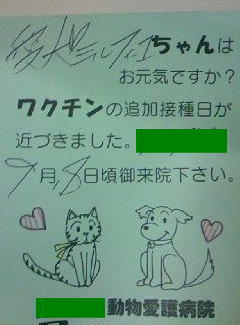 ちゃんは
お元気ですか？
ワクチンの追加接種日が
近づきました。
9月18日頃御来院下さい。
動物愛護病院